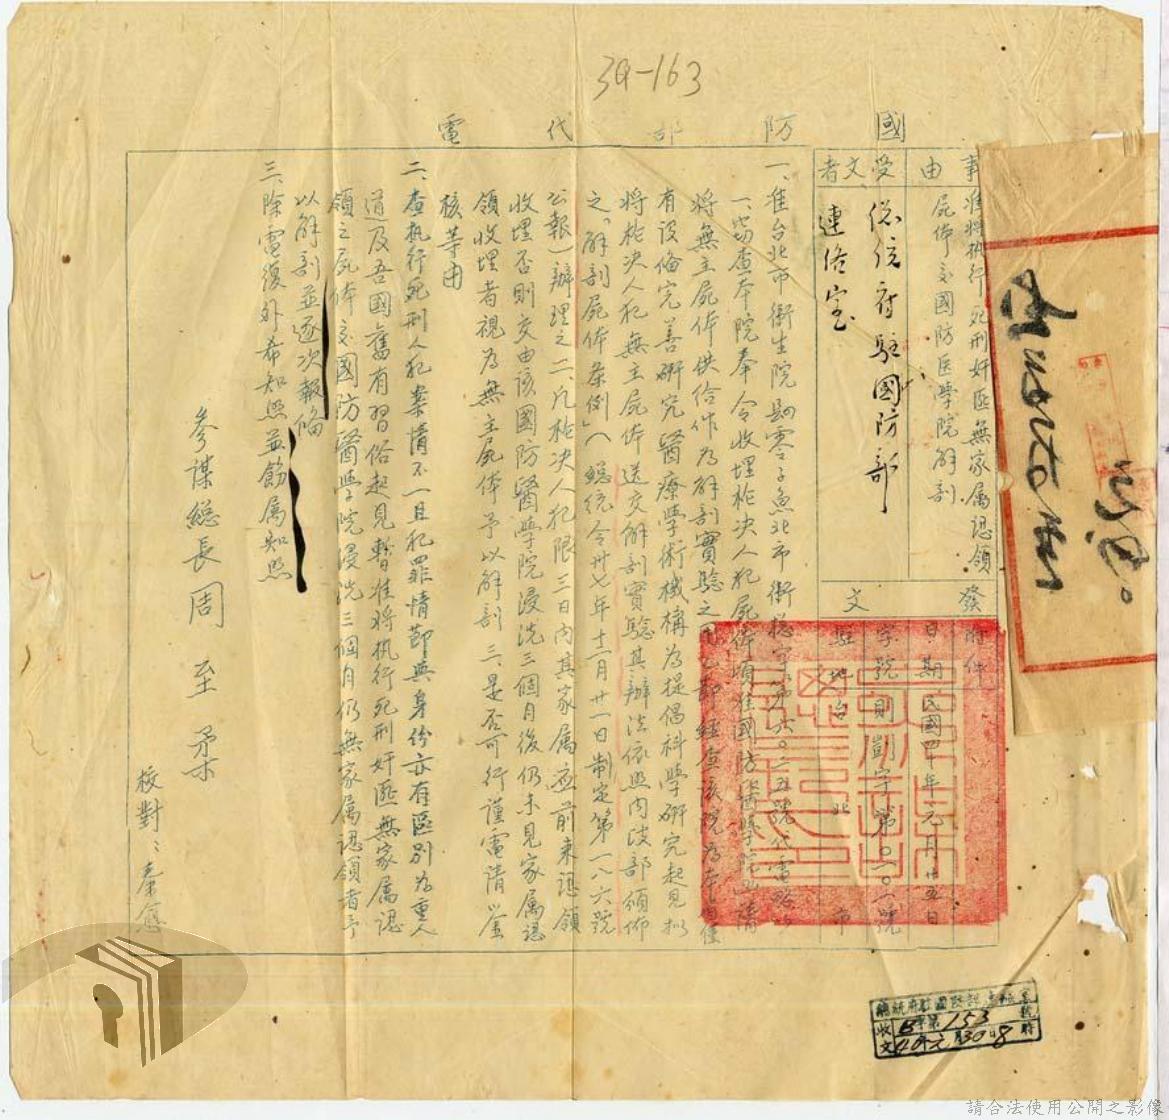 39-163
國防部代電
事由
准將執行死刑奸匪無家属認領
屍体交國防医学院解剖
受文者
總统府駐國防部
連絡室
發文
附件
日期 民國四十年元月廿五日
字號 則剴字第〇一〇一號
駐地 台北市
一、准台北市衛生院
一、窃查本院奉令收埋枪决人犯屍体頃准國防醫學院
將無主屍体供给作為解剖實騐之用
有设备完善研究醫療学術機構為提倡科學研究起見拟
將枪决人犯無主屍体送交解剖實驗其辦法依照内政部頒佈
之「解剖屍体条例」(總统令卅七年十二月廿一日制定第一八六號
公報)辦理之二、凡枪决人犯限三日内其家属应前来認領
收埋否則交由该國防醫学院浸洗三個月後仍未見家属認
領收埋者視為無主屍体予以解剖 三、是否可行谨電請鉴
核等由
二、查执行死刑人犯案情不一且犯罪情節與身份亦有區别為重人
道及吾國舊有習俗起見暫准將执行死刑奸匪無家属認
領之屍体交國防醫学院浸洗三個月仍無家属認領者予
以解剖並逐次報備
三、除電復外希知照並飭属知照
參謀總長周至柔
校對：
總統府駐國防部連絡室
收文
153
號
40年元月30日8時
請合法使用公開之影像